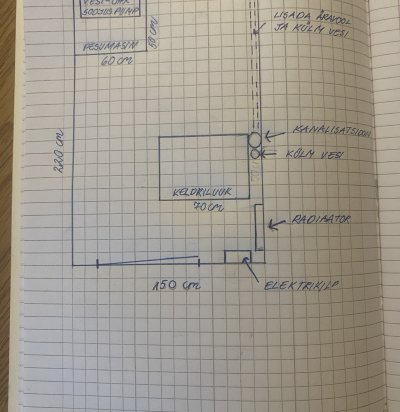 VESI-ÕHK
SOOJUSPUMP
PESUMASIN
60 cm
50 cm
LISADA ÄRAVOOL
JA KÜLM VESI
KANALISATSIOON
KÜLM VESI
220 cm
KELDRILUUK
70 cm
RADIAATOR
ELEKTRIKILP
150 cm